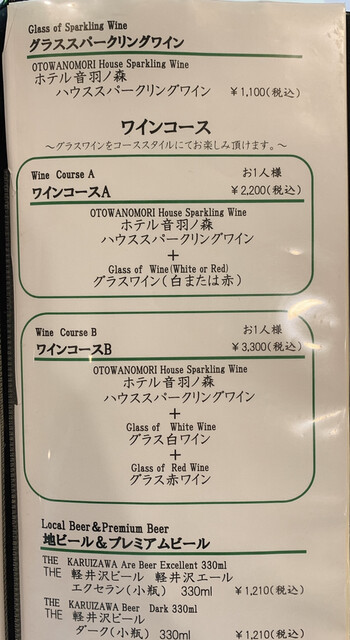 Glass of Sparkling Wine
グラススパークリングワイン
OTOWANOMORI House Sparkling Wine
ホテル音羽ノ森
ハウススパークリングワイン ￥1,100(税込)
ワインコース
～グラスワインをコーススタイルにてお楽しみ頂けます。～
Wine Course A お1人様
ワインコースA ￥2,200(税込)
OTOWANOMORI House Sparkling Wine
ホテル音羽ノ森
ハウススパークリングワイン
＋
Glass of Wine(White or Red)
グラスワイン(白または赤)
Wine Course B お1人様
ワインコースB ￥3,300(税込)
OTOWANOMORI House Sparkling Wine
ホテル音羽ノ森
ハウススパークリングワイン
＋
Glass of White Wine
グラス白ワイン
＋
Glass of Red Wine
グラス赤ワイン
Local Beer＆Premium Beer
地ビール＆プレミアムビール
THE KARUIZAWA Are Beer Excellent 330ml
THE 軽井沢ビール 軽井沢エール
エクセラン(小瓶) 330ml ￥1,210(税込)
THE KARUIZAWA Beer Dark 330ml
THE 軽井沢ビール
ダーク(小瓶) 330ml ￥1,210(税込)